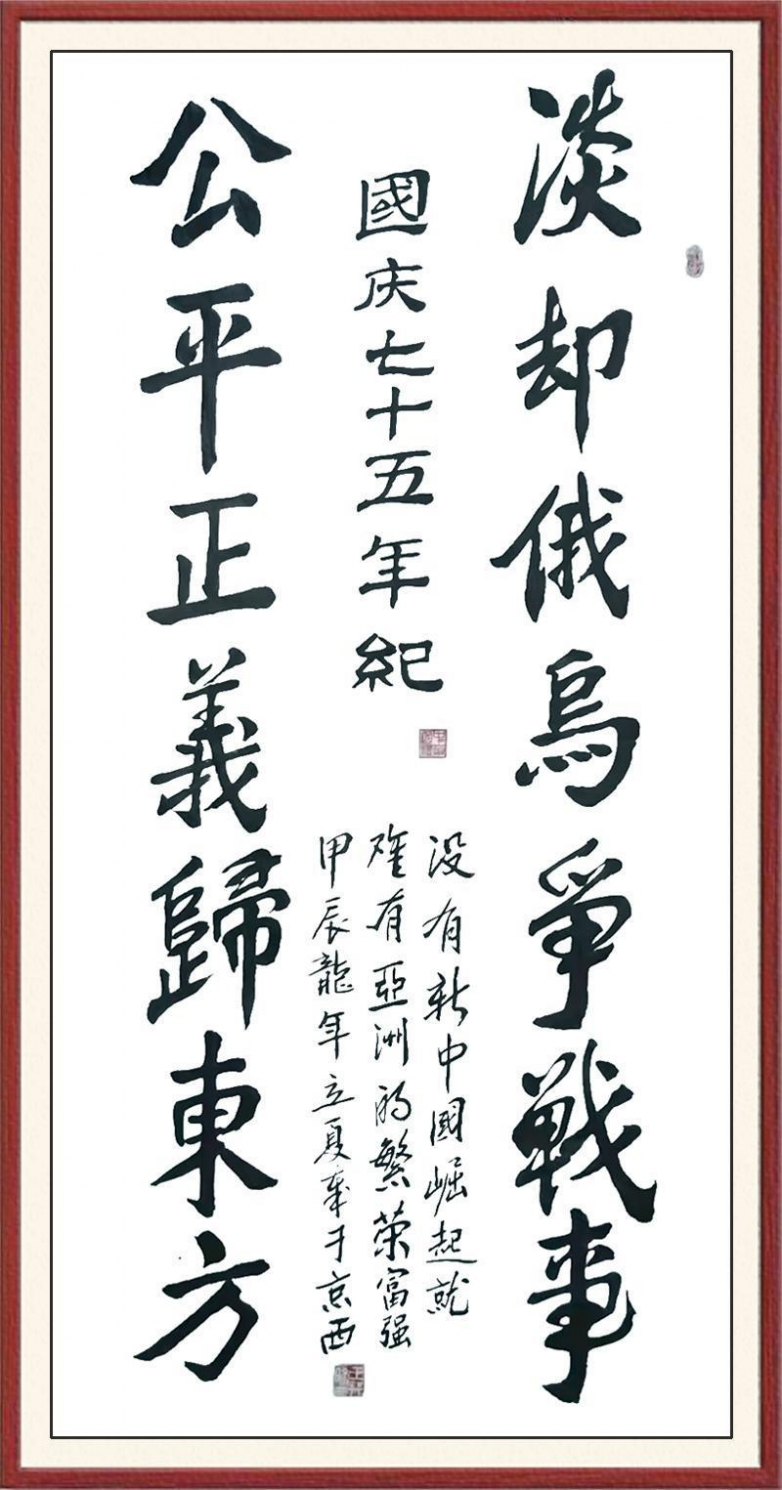 淡却俄烏爭戰事
國庆七十五年紀
公平正義歸東方
没有新中國崛起就
难有亞洲的繁荣富强
甲辰龍年立夏聿于京西